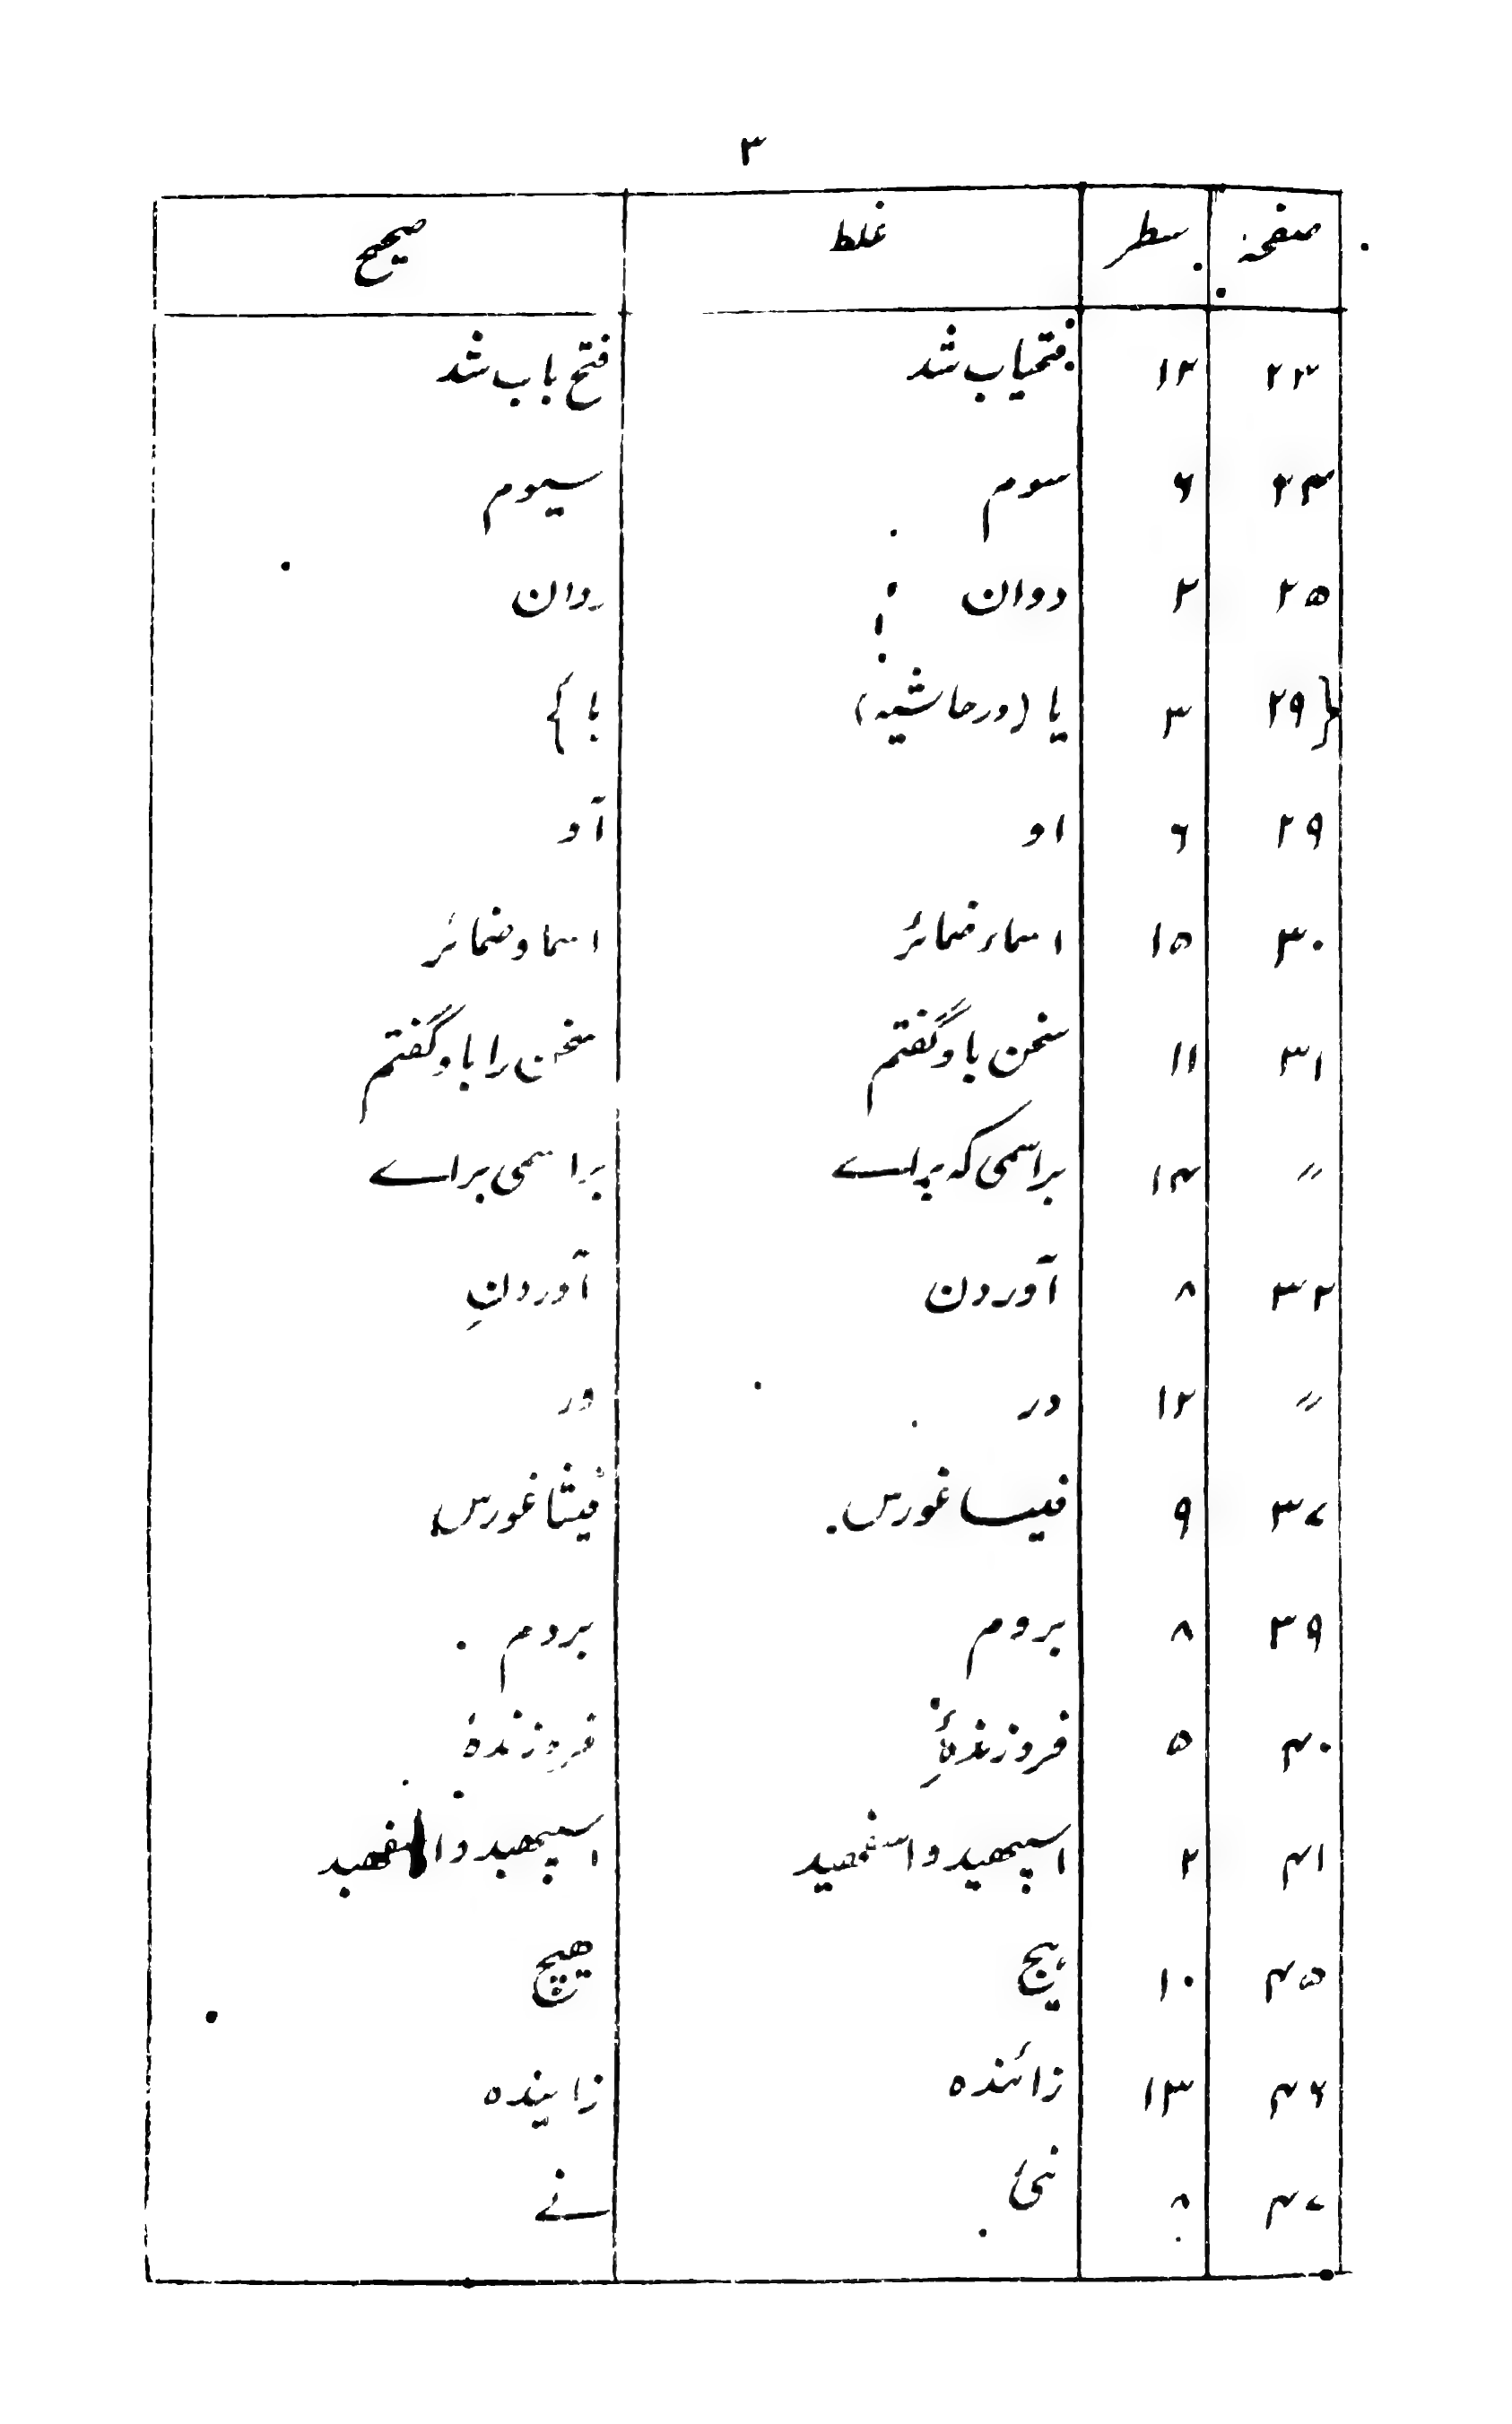 ۳
صفحہ سطر غلط صحیح
۲۳ ۱۲ فتحیاب شد فتح باب شد
۲۴ ۶ سوم سیوم
۲۵ ۲ دوان روان
{۲۹ ۳ یا (در حاشیہ) با}
۲۹ ۶ او آو
۳۰ ۱۵ اسماء ضمائر اسما و ضمائر
۳۱ ۱۱ سخن باو گفتم سخن را باو گفتم
〃 ۱۴ براسمی کہ براے براسمی براے
۳۲ ۸ آوردن آوردنِ
〃 ۱۲ در ور
۳۷ ۹ فیساغورس فیثاغورس
۳۹ ۸ بروم بردم
۴۰ ۵ فروزندۂِ فروزندۂ
۴۱ ۲ اسپهید و اسفهید اسپهبد و اسفهبد
۴۵ ۱۰ ہیج هیچ
۴۶ ۱۳ زائندہ زایندہ
۴۷ ۸ نئ نے